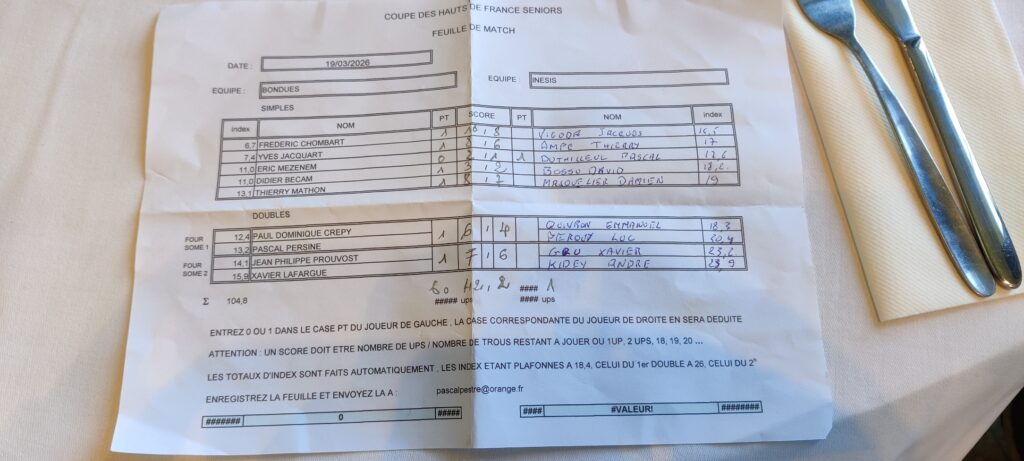 COUPE DES HAUTS DE FRANCE SENIORS
FEUILLE DE MATCH
DATE : 19/03/2026
EQUIPE : BONDUES EQUIPE : INESIS
SIMPLES
index NOM PT SCORE PT NOM index
6,7 FREDERIC CHOMBART 1 8 VIGODA JACQUES
7,4 YVES JACQUART 1 8 6 AMPE THIERRY 17
11,0 ERIC MEZENEM 0 2 1 1 DUTHILLEUL PASCAL 12,6
11,0 DIDIER BECAM 1 3 2 BOSSU DAVID
13,1 THIERRY MATHON 1 8 7 MARQUELIER DAMIEN 19
DOUBLES
FOUR SOME 1
12,4 PAUL DOMINIQUE CREPY 1 6 4 EMMANUEL 18,3
13,2 PASCAL PERSINE LUC 20,4
FOUR SOME 2
14,1 JEAN PHILIPPE PROUVOST 1 7 6 XAVIER
15,9 XAVIER LAFARGUE KIDEY ANDRE
Σ 104,8 1
##### ups #### ups
ENTREZ 0 OU 1 DANS LE CASE PT DU JOUEUR DE GAUCHE , LA CASE CORRESPONDANTE DU JOUEUR DE DROITE EN SERA DEDUITE
ATTENTION : UN SCORE DOIT ETRE NOMBRE DE UPS / NOMBRE DE TROUS RESTANT A JOUER OU 1UP, 2 UPS, 18, 19, 20 ...
LES TOTAUX D'INDEX SONT FAITS AUTOMATIQUEMENT , LES INDEX ETANT PLAFONNES A 18,4, CELUI DU 1er DOUBLE A 26, CELUI DU 2°
ENREGISTREZ LA FEUILLE ET ENVOYEZ LA A : pascalpestre@orange.fr
####### 0 ##### #### #VALEUR! ########